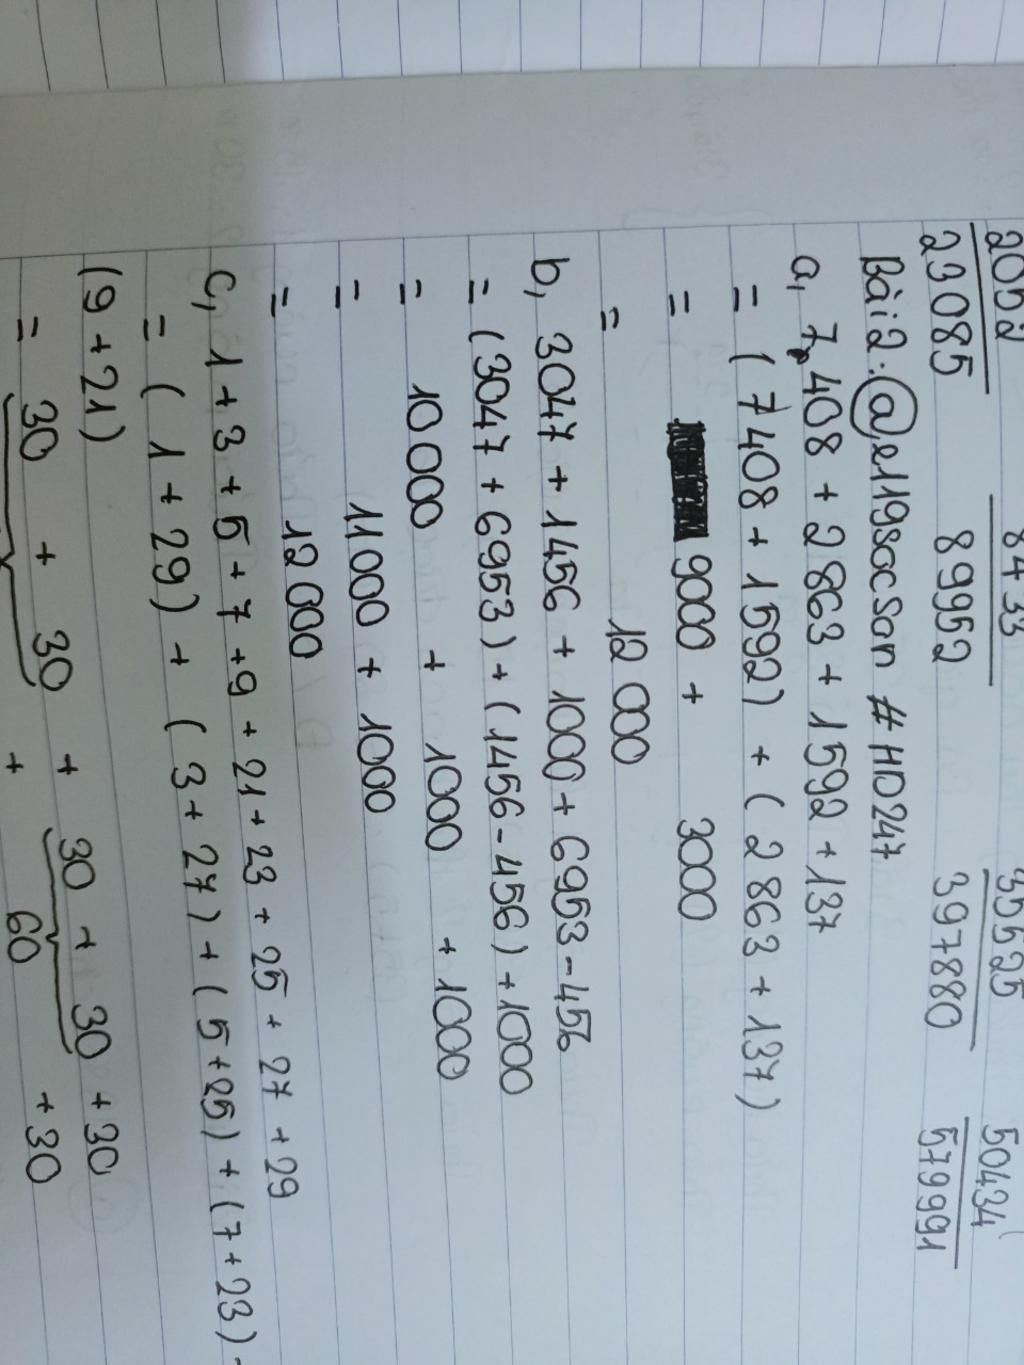 2052 8433 35525 50434
23085 89952 397880 579991
Bài 2: @e119socson #HD247
a, 7408 + 2863 + 1592 + 137
= (7408 + 1592) + (2863 + 137)
= 9000 + 3000
= 12 000
b, 3047 + 1456 + 1000 + 6953 - 456
= (3047 + 6953) + (1456 - 456) + 1000
= 10 000 + 1000 + 1000
= 11 000 + 1000
= 12 000
c, 1 + 3 + 5 + 7 + 9 + 21 + 23 + 25 + 27 + 29
= (1 + 29) + (3 + 27) + (5 + 25) + (7 + 23) +
(9 + 21)
= 30 + 30 + 30 + 30 + 30
+ 60 + 30